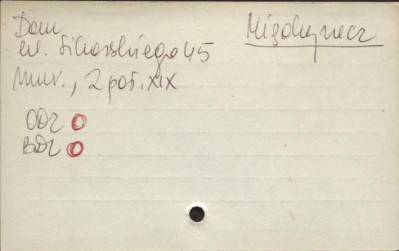 Dom Międzyrzecz
ul. Sikorskiego 45
mur., 2 poł. XIX
ODZ O
BDZ O